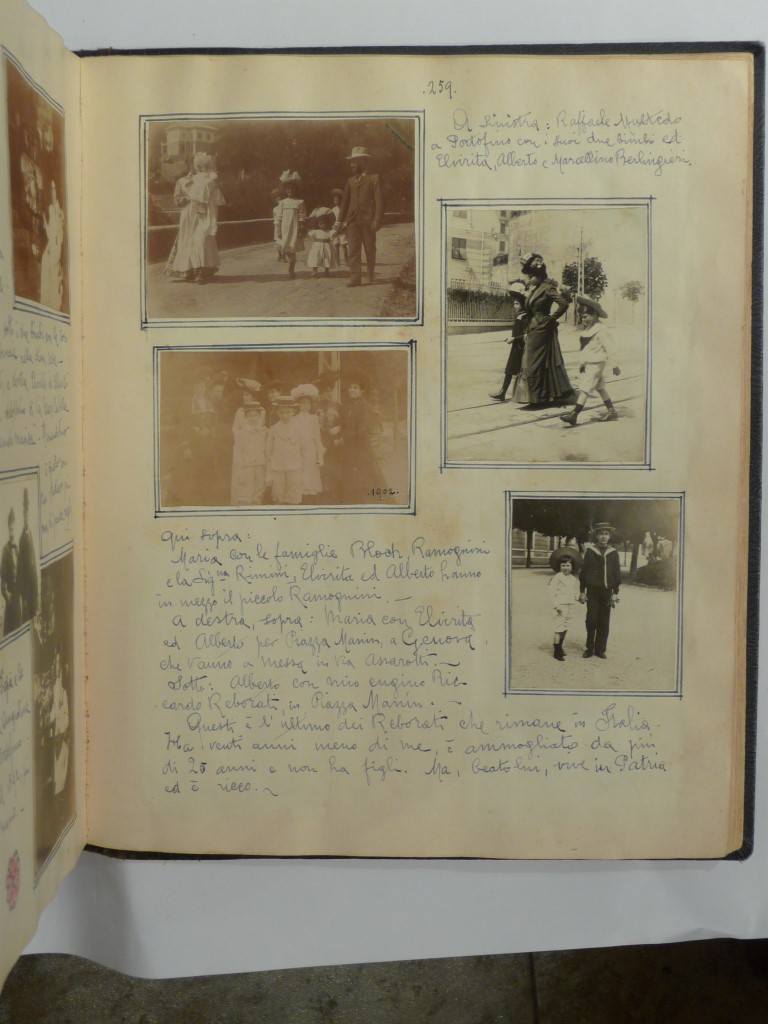 .259.
A sinistra: Raffaele Multedo
a Portofino con i suoi due bimbi ed
Elvirita, Alberto e Marcellino Berlingieri.
.1902.
Qui sopra:
Maria con le famiglie Bloch, Ramognini
e la Sigᵑᵃ Rimini, Elvirita ed Alberto hanno
in mezzo il piccolo Ramognini. —
A destra, sopra: Maria con Elvirita
ed Alberto per Piazza Manin, a Genova,
che vanno a messa in via Assarotti. —
Sotto: Alberto con mio cugino Ric-
cardo Reborati, in Piazza Manin. —
Questi è l'ultimo dei Reborati che rimane in Italia.
Ha venti anni meno di me, è ammogliato da più
di 25 anni e non ha figli. Ma, beato lui, vive in Patria
ed è ricco. ~